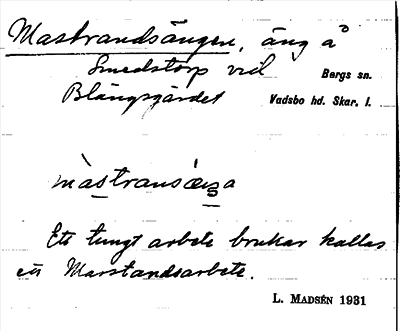 Mastrandsängen, äng å
Smedstorp vid Bergs sn.
Blängsgärdet Vadsbo hd. Skar. l.
màstransǽŋa
Ett tungt arbete brukar kallas
ett Marstandsarbete.
L. MADSÉN 1931